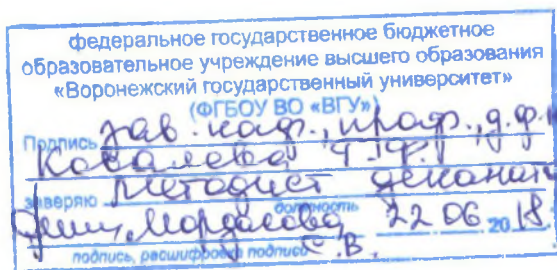 федеральное государственное бюджетное
образовательное учреждение высшего образования
«Воронежский государственный университет»
(ФГБОУ ВО «ВГУ»)
Подпись зав. каф., проф., д.ф.н
Ковалева Г.Ф.
заверяю методист деканата
должность
Мордасова 22 06 20 18
подпись, расшифровка подписи Е.В.